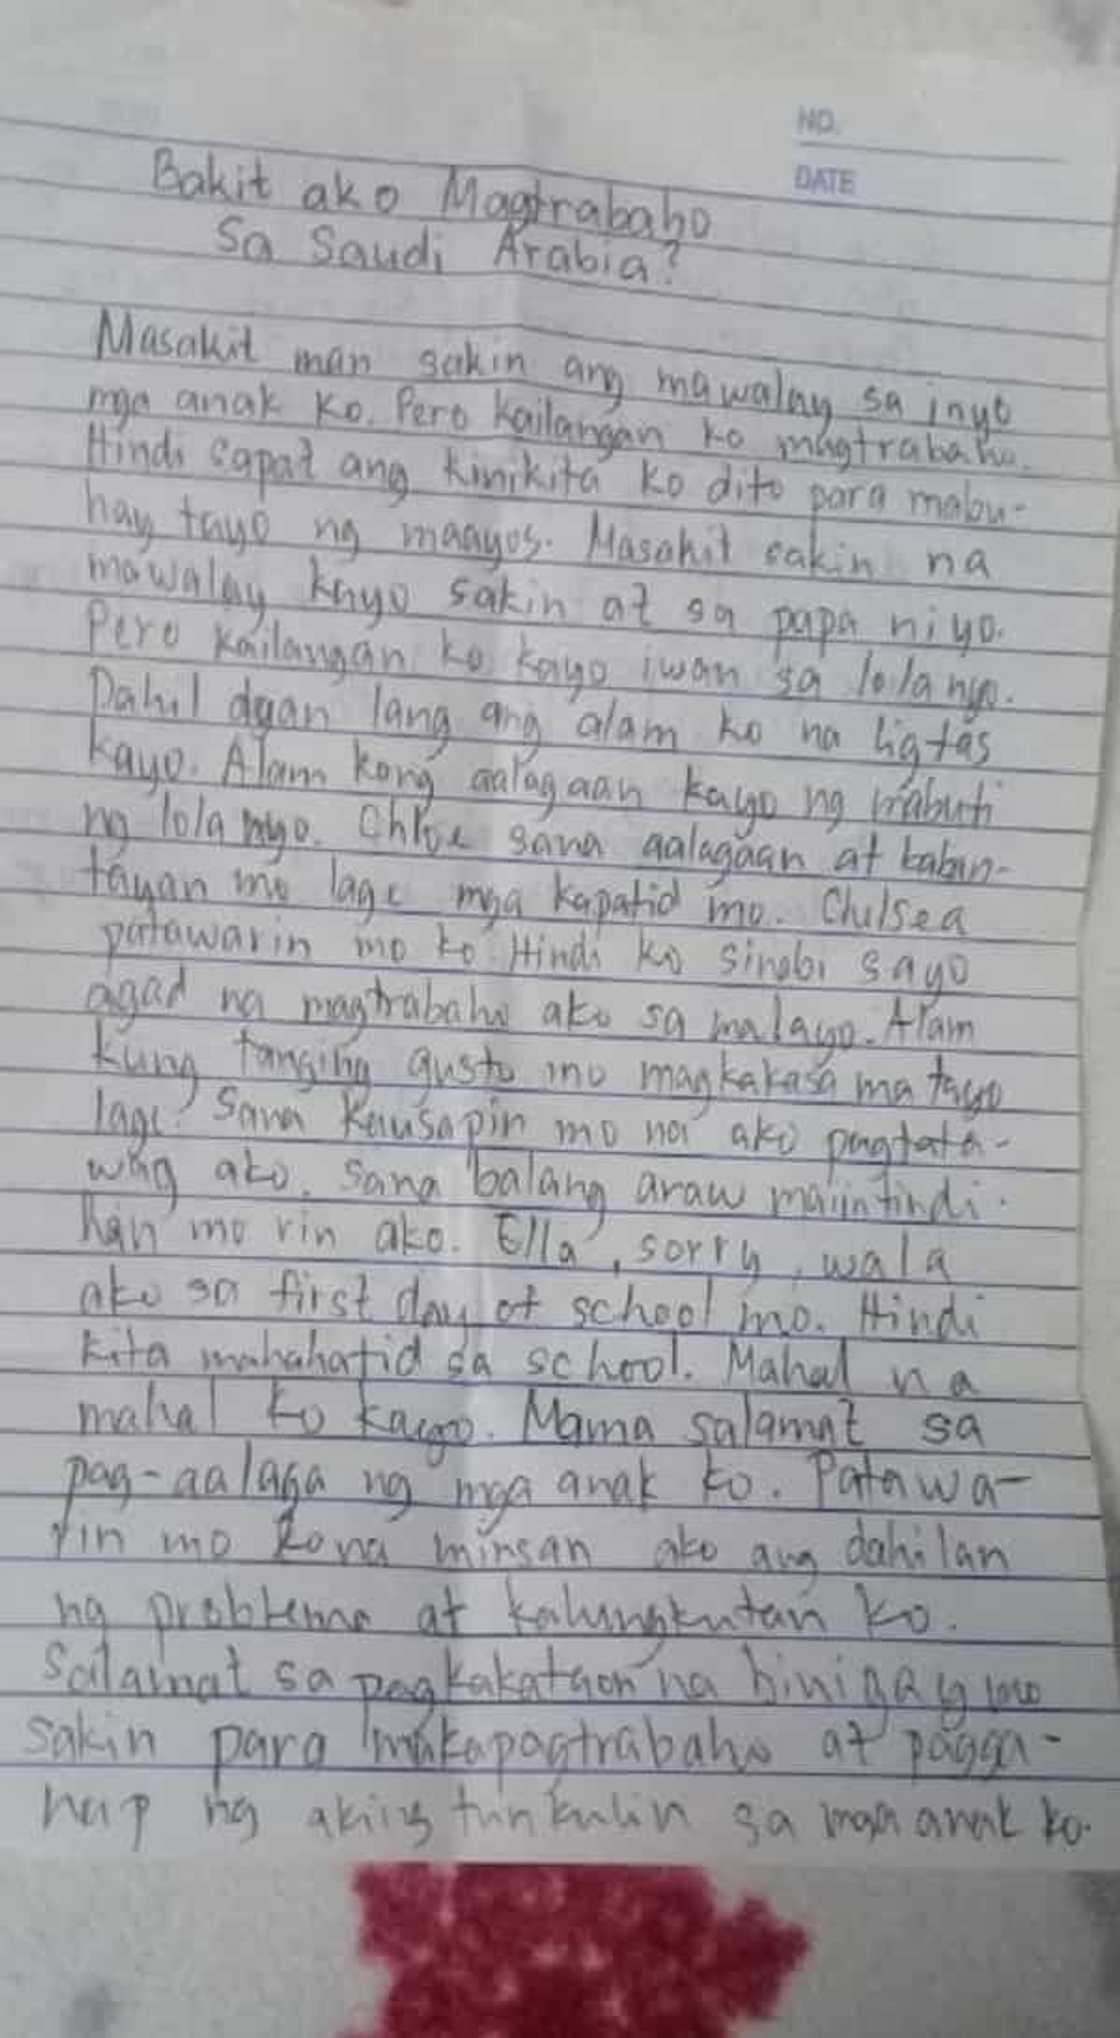 NO.
DATE
Bakit ako Magtrabaho
sa Saudi Arabia?
Masakit man sakin ang mawalay sa inyo
mga anak ko. Pero kailangan ko magtrabaho.
Hindi sapat ang kinikita ko dito para mabu-
hay tayo ng maayos. Masakit sakin na
mawalay kayo sakin at sa papa niyo.
Pero kailangan ko kayo iwan sa lola nyo.
Dahil dyan lang ang alam ko na ligtas
kayo. Alam kong aalagaan kayo ng mabuti
ng lola nyo. Chloe sana aalagaan at baban-
tayan mo lage mga kapatid mo. Chelsea
patawarin mo ko. Hindi ko sinabi sayo
agad na magtrabaho ako sa malayo. Alam
kung tanging gusto mo magkakasama tayo
lage. Sana kausapin mo na ako pagtata-
wag ako. Sana balang araw maiintindi-
han mo rin ako. Ella, sorry, wala
ako sa first day of school mo. Hindi
kita mahahatid sa school. Mahal na
mahal ko kayo. Mama salamat sa
pag-aalaga ng mga anak ko. Patawa-
rin mo kona minsan ako ang dahilan
ng problema at kalungkutan ko.
Salamat sa pagkakataon na binigay mo
sakin para makapagtrabaho at pagga-
nap ng aking tunkulin sa mga anak ko.